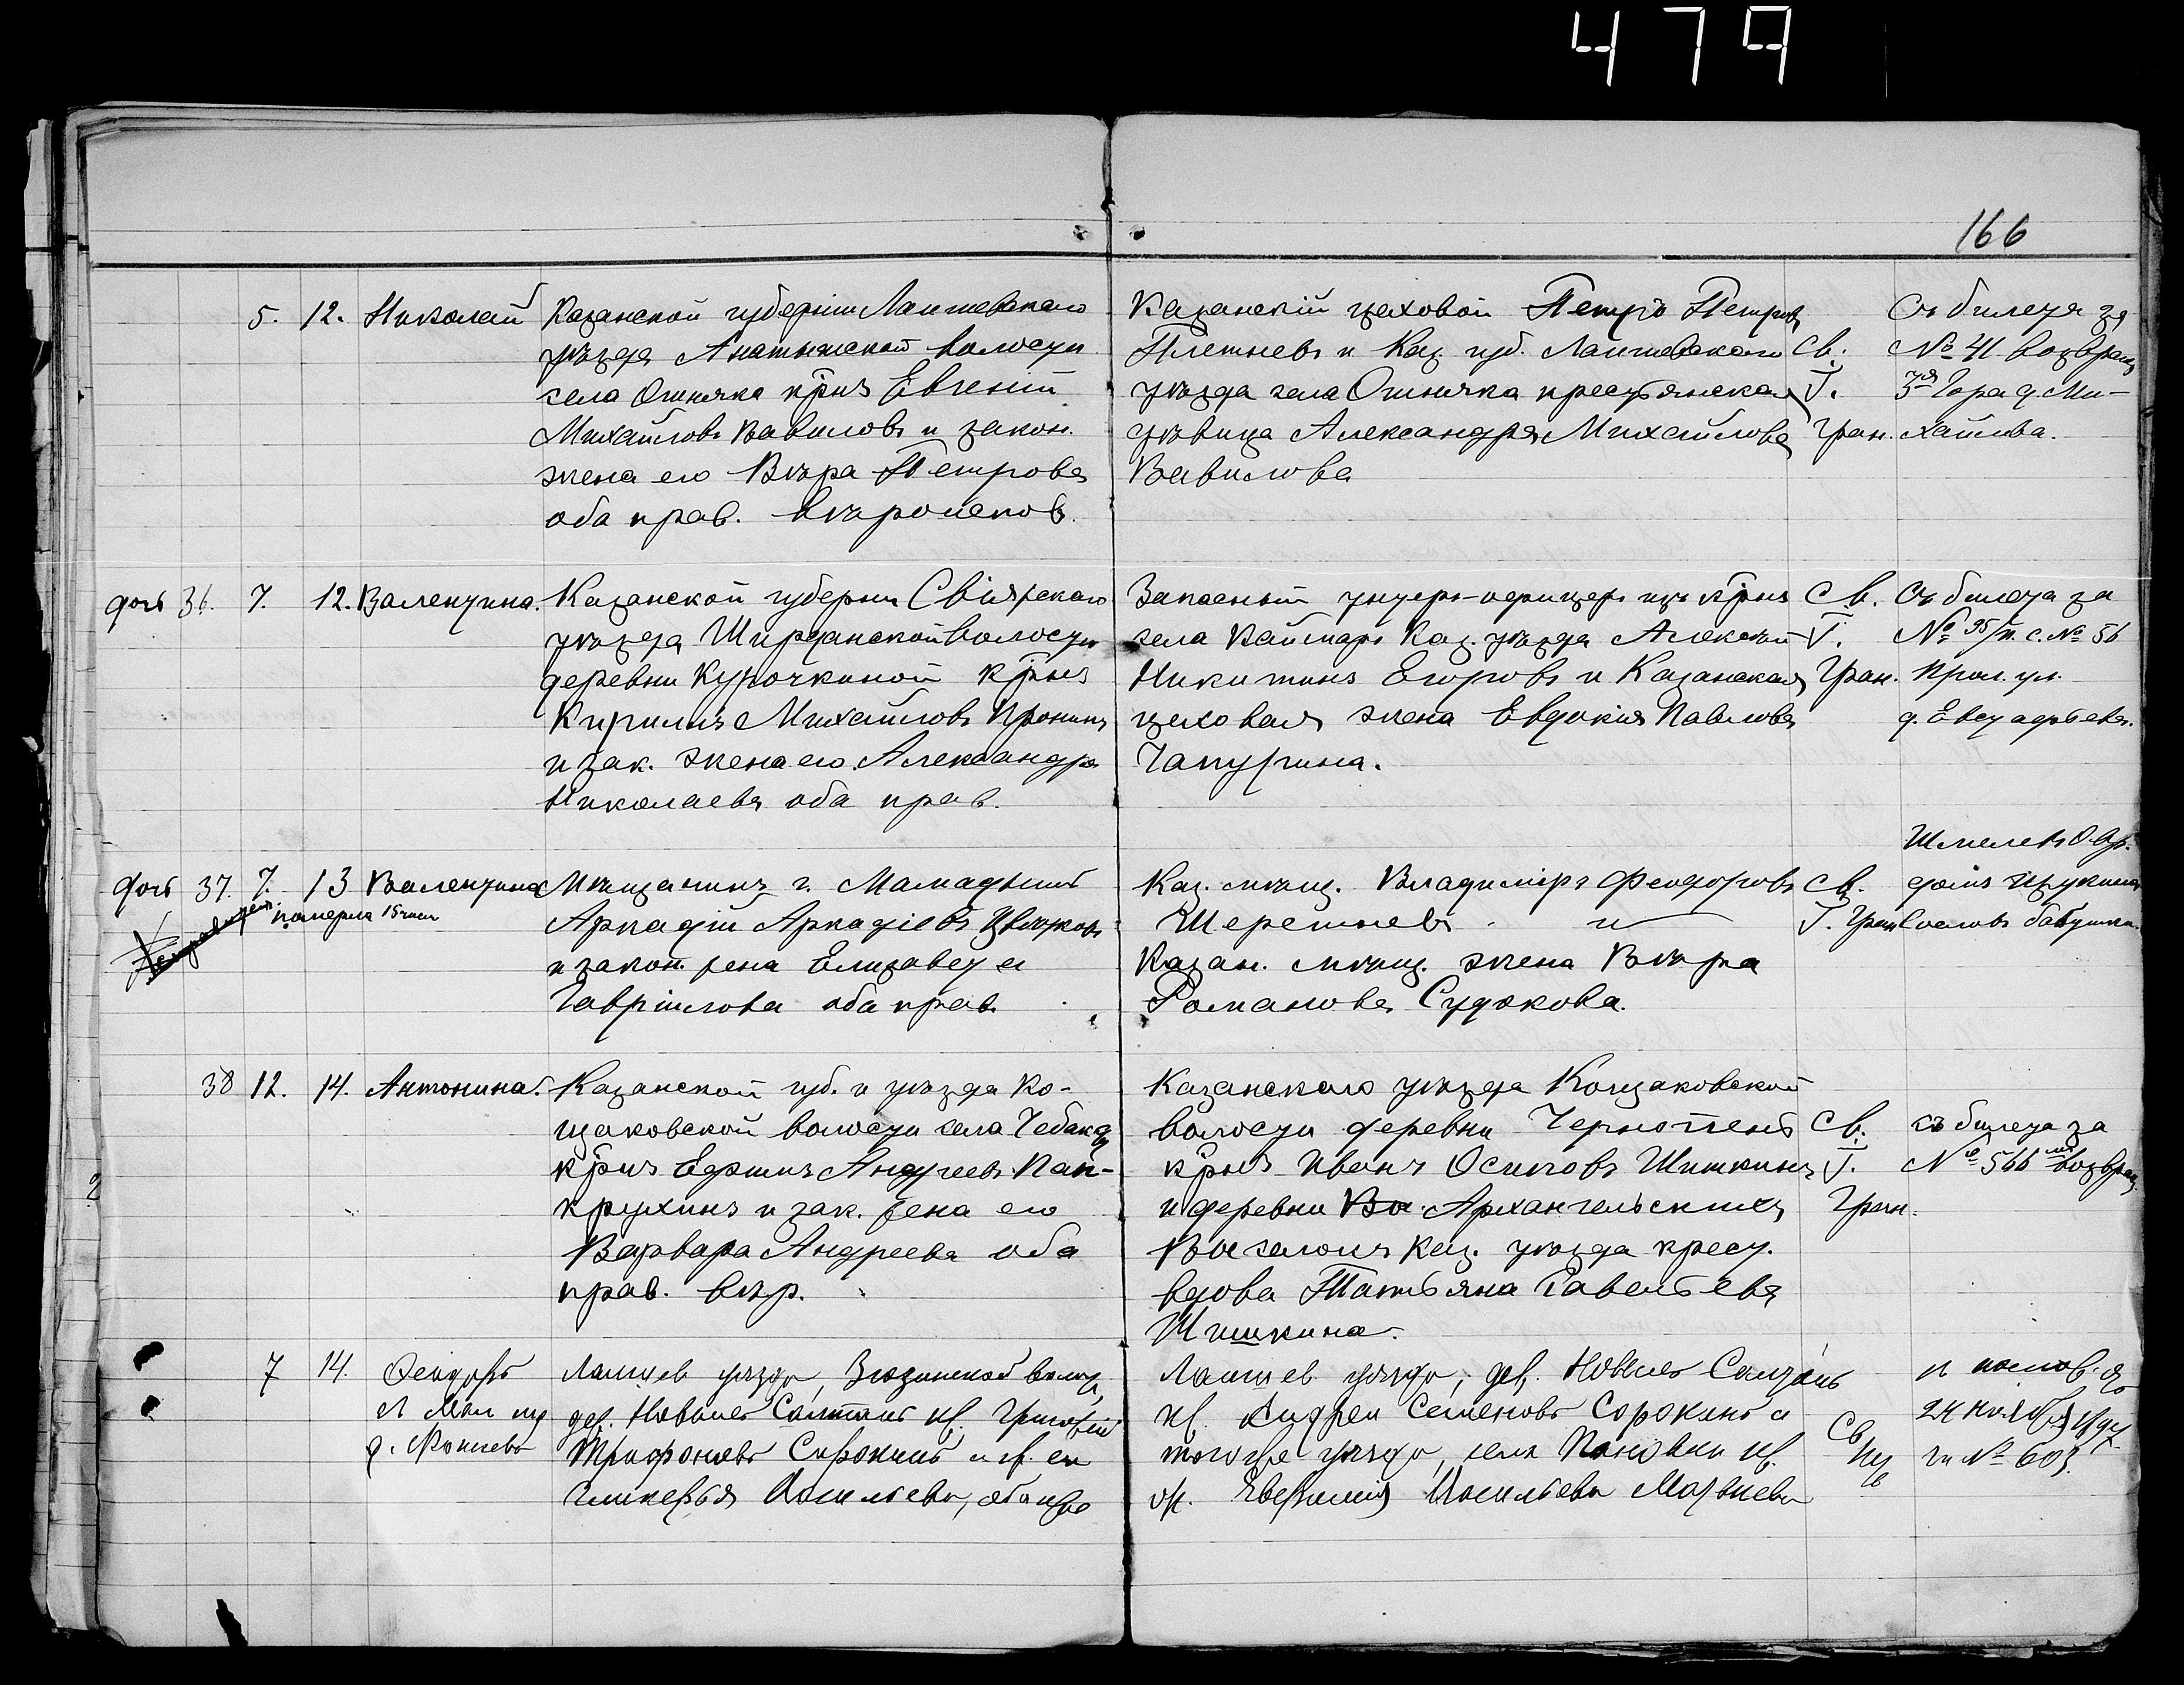 479
166
5. 12. Николай
Казанской губерніи Лаишевскаго
уѣзда Анатышской волости
села Ошняка крнъ Евгеній
Михайловъ Вавиловъ и закон.
жена его Вѣра Петрова
оба прав. вѣроисков.
Казанскій цеховой Петръ Петровъ
Плетневъ и Каз. губ. Лаишевскаго
уѣзда села Ошняка крестьянская
дѣвица Александра Михайлова
Вавилова
Св.
Т.
Гран.
Съ билета за
№ 41 возвращ
3я Гора д. Ми-
хайлова.
дочь 36. 7. 12. Валентина.
Казанской губерніи Свіяжскаго
уѣзда Ширданской волости
деревни Курочкиной крнъ
Кириллъ Михайловъ Пронинъ
и зак. жена его Александра
Николаева оба прав.
Запасный унтеръ-офицеръ изъ крнъ
села Ваймаръ Каз. уѣзда Алексѣй
Никитинъ Егоровъ и Казанская
цеховая жена Евдокія Павлова
Чапурина.
Св.
Т.
Гран.
Съ билета за
№ 95/п. с. № 56
Прол. ул.
д. Евстафьева.
дочь 37. 7. 13 Валентина
померла 15 числ
Мѣщанинъ г. Мамадышъ
Аркадій Аркадіевъ Цвѣтковъ
и закон. жена Елизавета
Гавріилова оба прав.
Каз. мѣщ. Владиміръ Феодоровъ
Шереметевъ и
Казан. мѣщ. жена Вѣра
Романова Судакова.
Св.
Т. Гран
домъ Щукина
бабушка.
38 12. 14. Антонина.
Казанской губ. и уѣзда Ко-
щаковской волости села Чебакса
крнъ Ефимъ Андреевъ Пан-
крухинъ и зак. жена его
Варвара Андреева оба
прав. вѣр.
Казанскаго уѣзда Кощаковской
волости деревни Чернопенъ
крнъ Иванъ Осиповъ Шишкинъ
и деревни Архангельскихъ
Выселокъ Каз. уѣзда крест.
вдова Татьяна Савельева
Шишкина.
Св.
Т.
Гран.
съ билета за
№ 566 возвращ
7 14. Феодоръ
Лаишев. уѣзда, Зюзинской волост,
дер. Новыхъ Салтанъ кр. Григорій
Трифоновъ Сорокинъ и ж. ея
Гликерья Васильева, оба прав
Лаишев. уѣзда, дер. Новыхъ Салтанъ
кр. Андрей Семеновъ Сорокинъ и
тогоже уѣзда, села Пановки кр.
Васильева Матвѣева
Св
24 ноября
№ 603.